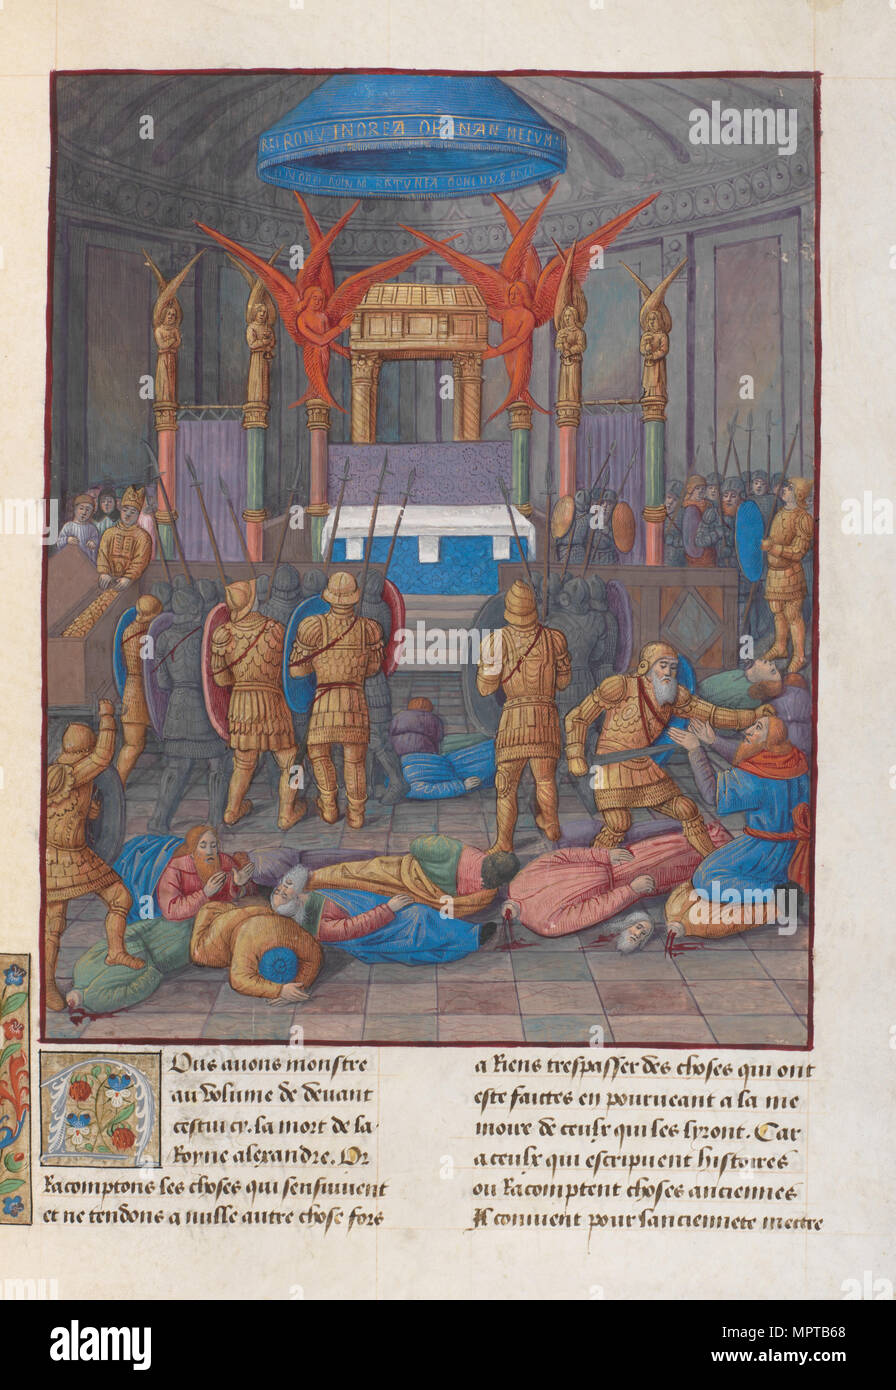 INOREA
Nous avons monstre
au volume de devant
cestui cy. la mort de la
Royne alexandre. Or
Racomptons les choses qui sensuivent
et ne tendons a nulle autre chose fors
a Riens trespasser des choses qui ont
este faictes en pourueant a la me
moire de ceulx qui les lyront. Car
a ceulx qui escripuent histoires
ou Racomptent choses anciennes
Il conuient pour lanciennete mettre
a
alamy
Image ID: MPTB68
www.alamy.com